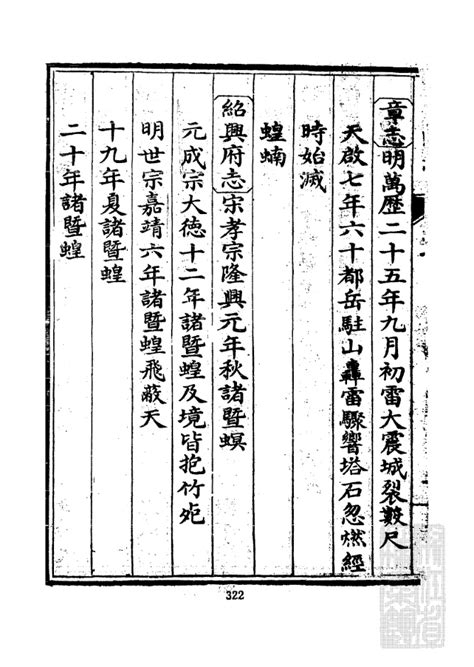 章志明萬歷二十五年九月初雷大震城裂數尺
天啟七年六十都岳駐山轟雷驟響塔石忽燃經
時始滅
蝗蝻
紹興府志宋孝宗隆興元年秋諸暨螟
元成宗大德十二年諸暨蝗及境皆抱竹死
明世宗嘉靖六年諸暨蝗飛蔽天
十九年夏諸暨蝗
二十年諸暨蝗
322